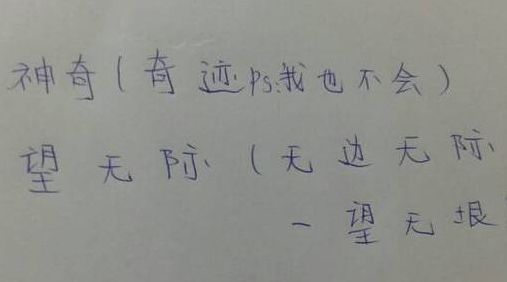 神奇(奇迹ps:我也不会)
望无际(无边无际
一望无垠